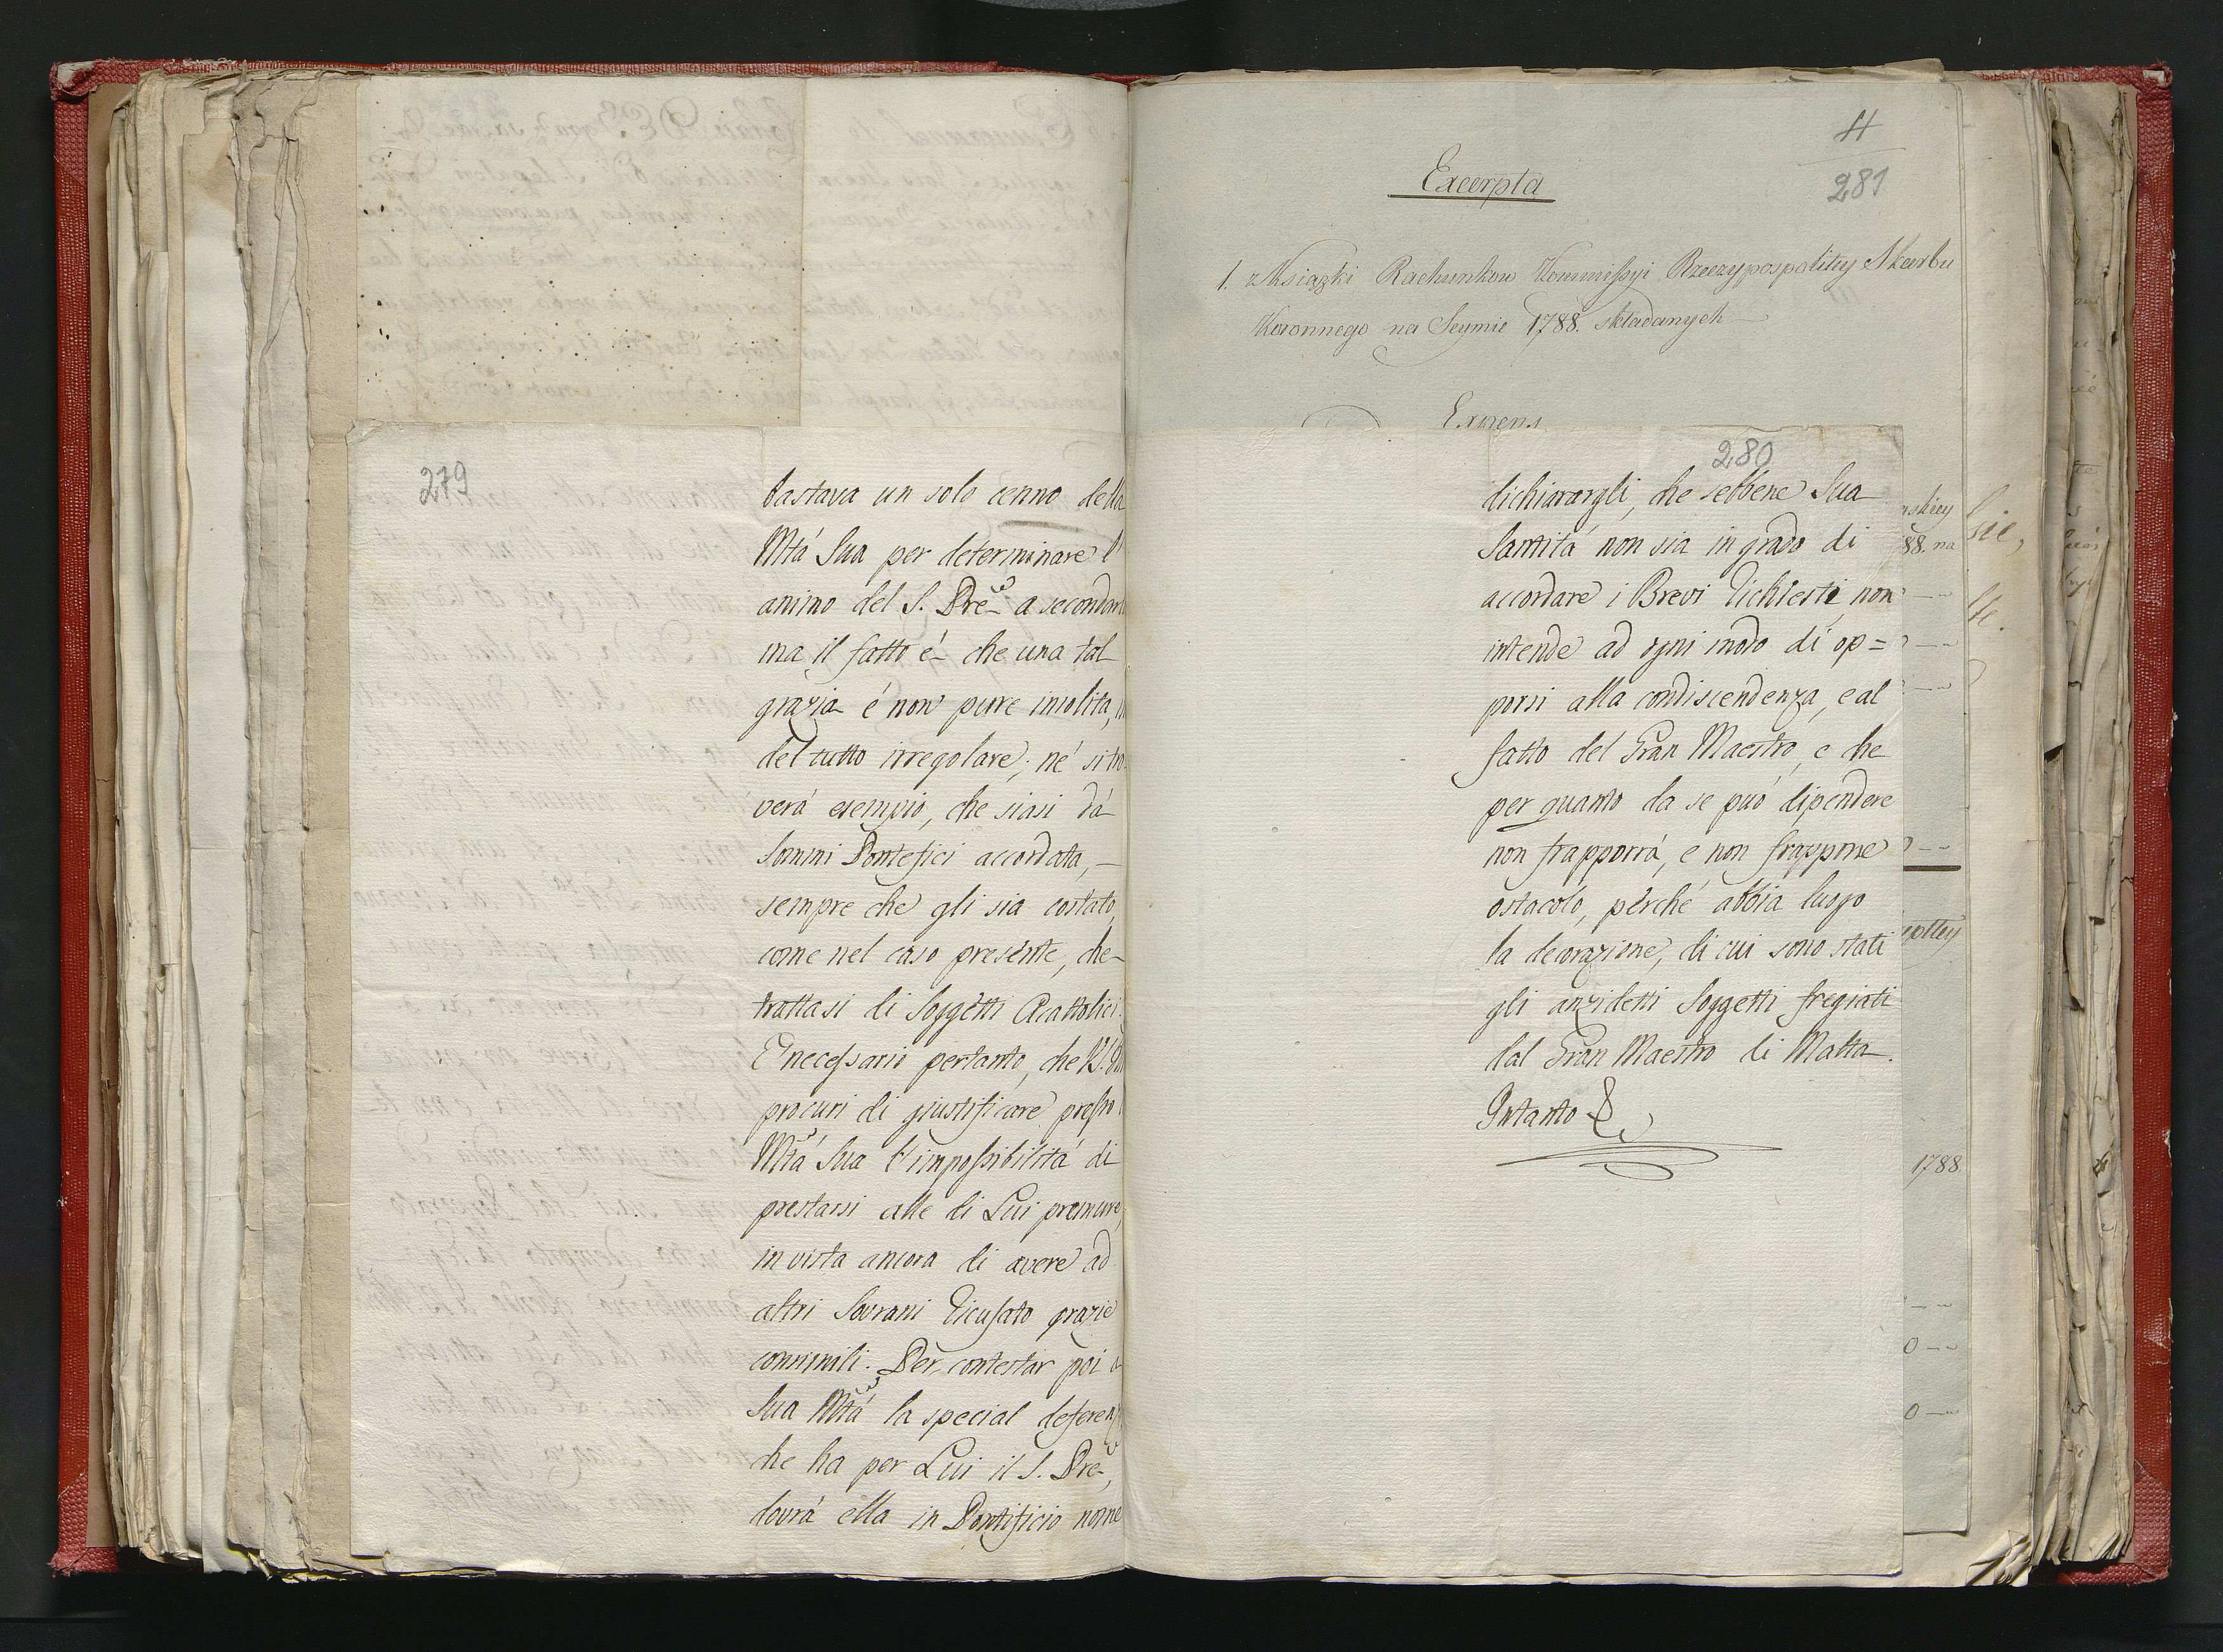 279
bastava un solo cenno della
Mtá Sua per determinare l'
animo del S. Pre a secondar
ma il fatto é che una tal
grazia é non pure insolita,
del tutto irregolare; né si tro
verá esempio, che siasi dá
Sommi Pontefici accordata, —
sempre che gli sia costato,
come nel caso presente, che
trattasi di Soggetti Acattolici.
E' necessario pertanto, che V. S.
procuri di giustificare presso
Mtá Sua l'impossibilitá di
prestarsi alle di Lui premure,
in vista ancora di avere ad
altri Sovrani ricusato grazie
consimili. Per contestar poi a
Sua Mtá la special deferenz
che ha per Lui il S. Pre,
dovrá ella in Pontificio nome
H
281
Excerpta
1. z Ksiąski Rachunkow Kommissyi Rzeczypospolitey Skarbu
Koronnego na Seymie 1788. składanych —
Expens
280
dichiarargli, che sebbene Sua
Santitá non sia in grado di
accordare i Brevi richiesti, non
intende ad ogni modo di op=
porsi alla condiscendenza, e al
fatto del Gran Maestro, e che
per quanto da se puó dipendere
non frapporrá, e non frappone
ostacolo, perché abbia luogo
la decorazione, di cui sono stati
gli anzidetti Soggetti fregiati
dal Gran Maestro di Malta.
Intanto &
88. na
1788.